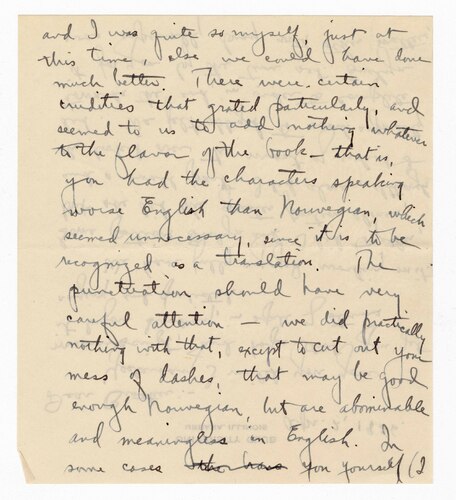 and I was quite so myself, just at
this time, else we could have done
much better. There were certain
crudities that grated particularly, and
seemed to us to add nothing whatever
to the flavor of the book – that is,
you had the characters speaking
worse English than Norwegian, which
seemed unnecessary, since it is to be
recognized as a translation. The
punctuation should have very
careful attention – we did practically
nothing with that, except to cut out your
mess of dashes, that may be good
enough Norwegian, but are abominable
and meaningless in English. In
some cases you yourself (I